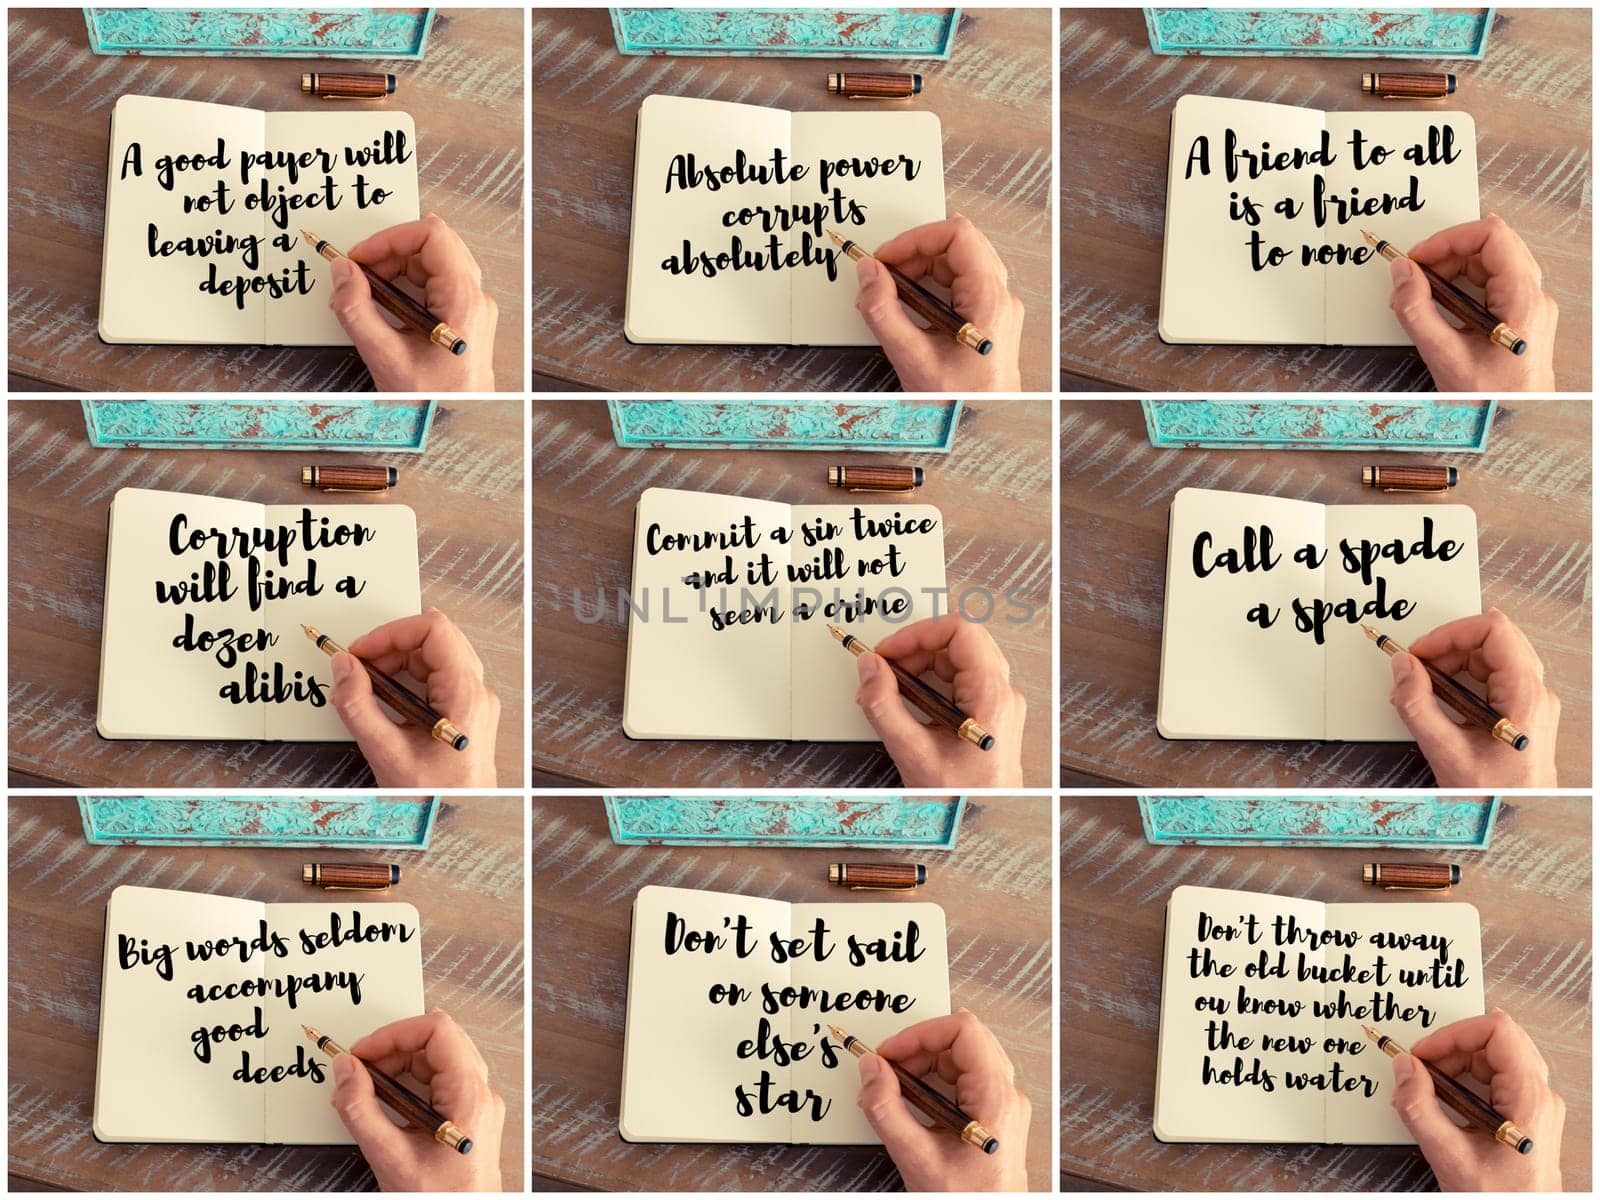 A good payer will
not object to
leaving a
deposit
Absolute power
corrupts
absolutely
A friend to all
is a friend
to none
Corruption
will find a
dozen
alibis
Commit a sin twice
and it will not
seem a crime
Call a spade
a spade
UNLIMPHOTOS
Big words seldom
accompany
good
deeds
Don't set sail
on someone
else's
star
Don't throw away
the old bucket until
ou know whether
the new one
holds water